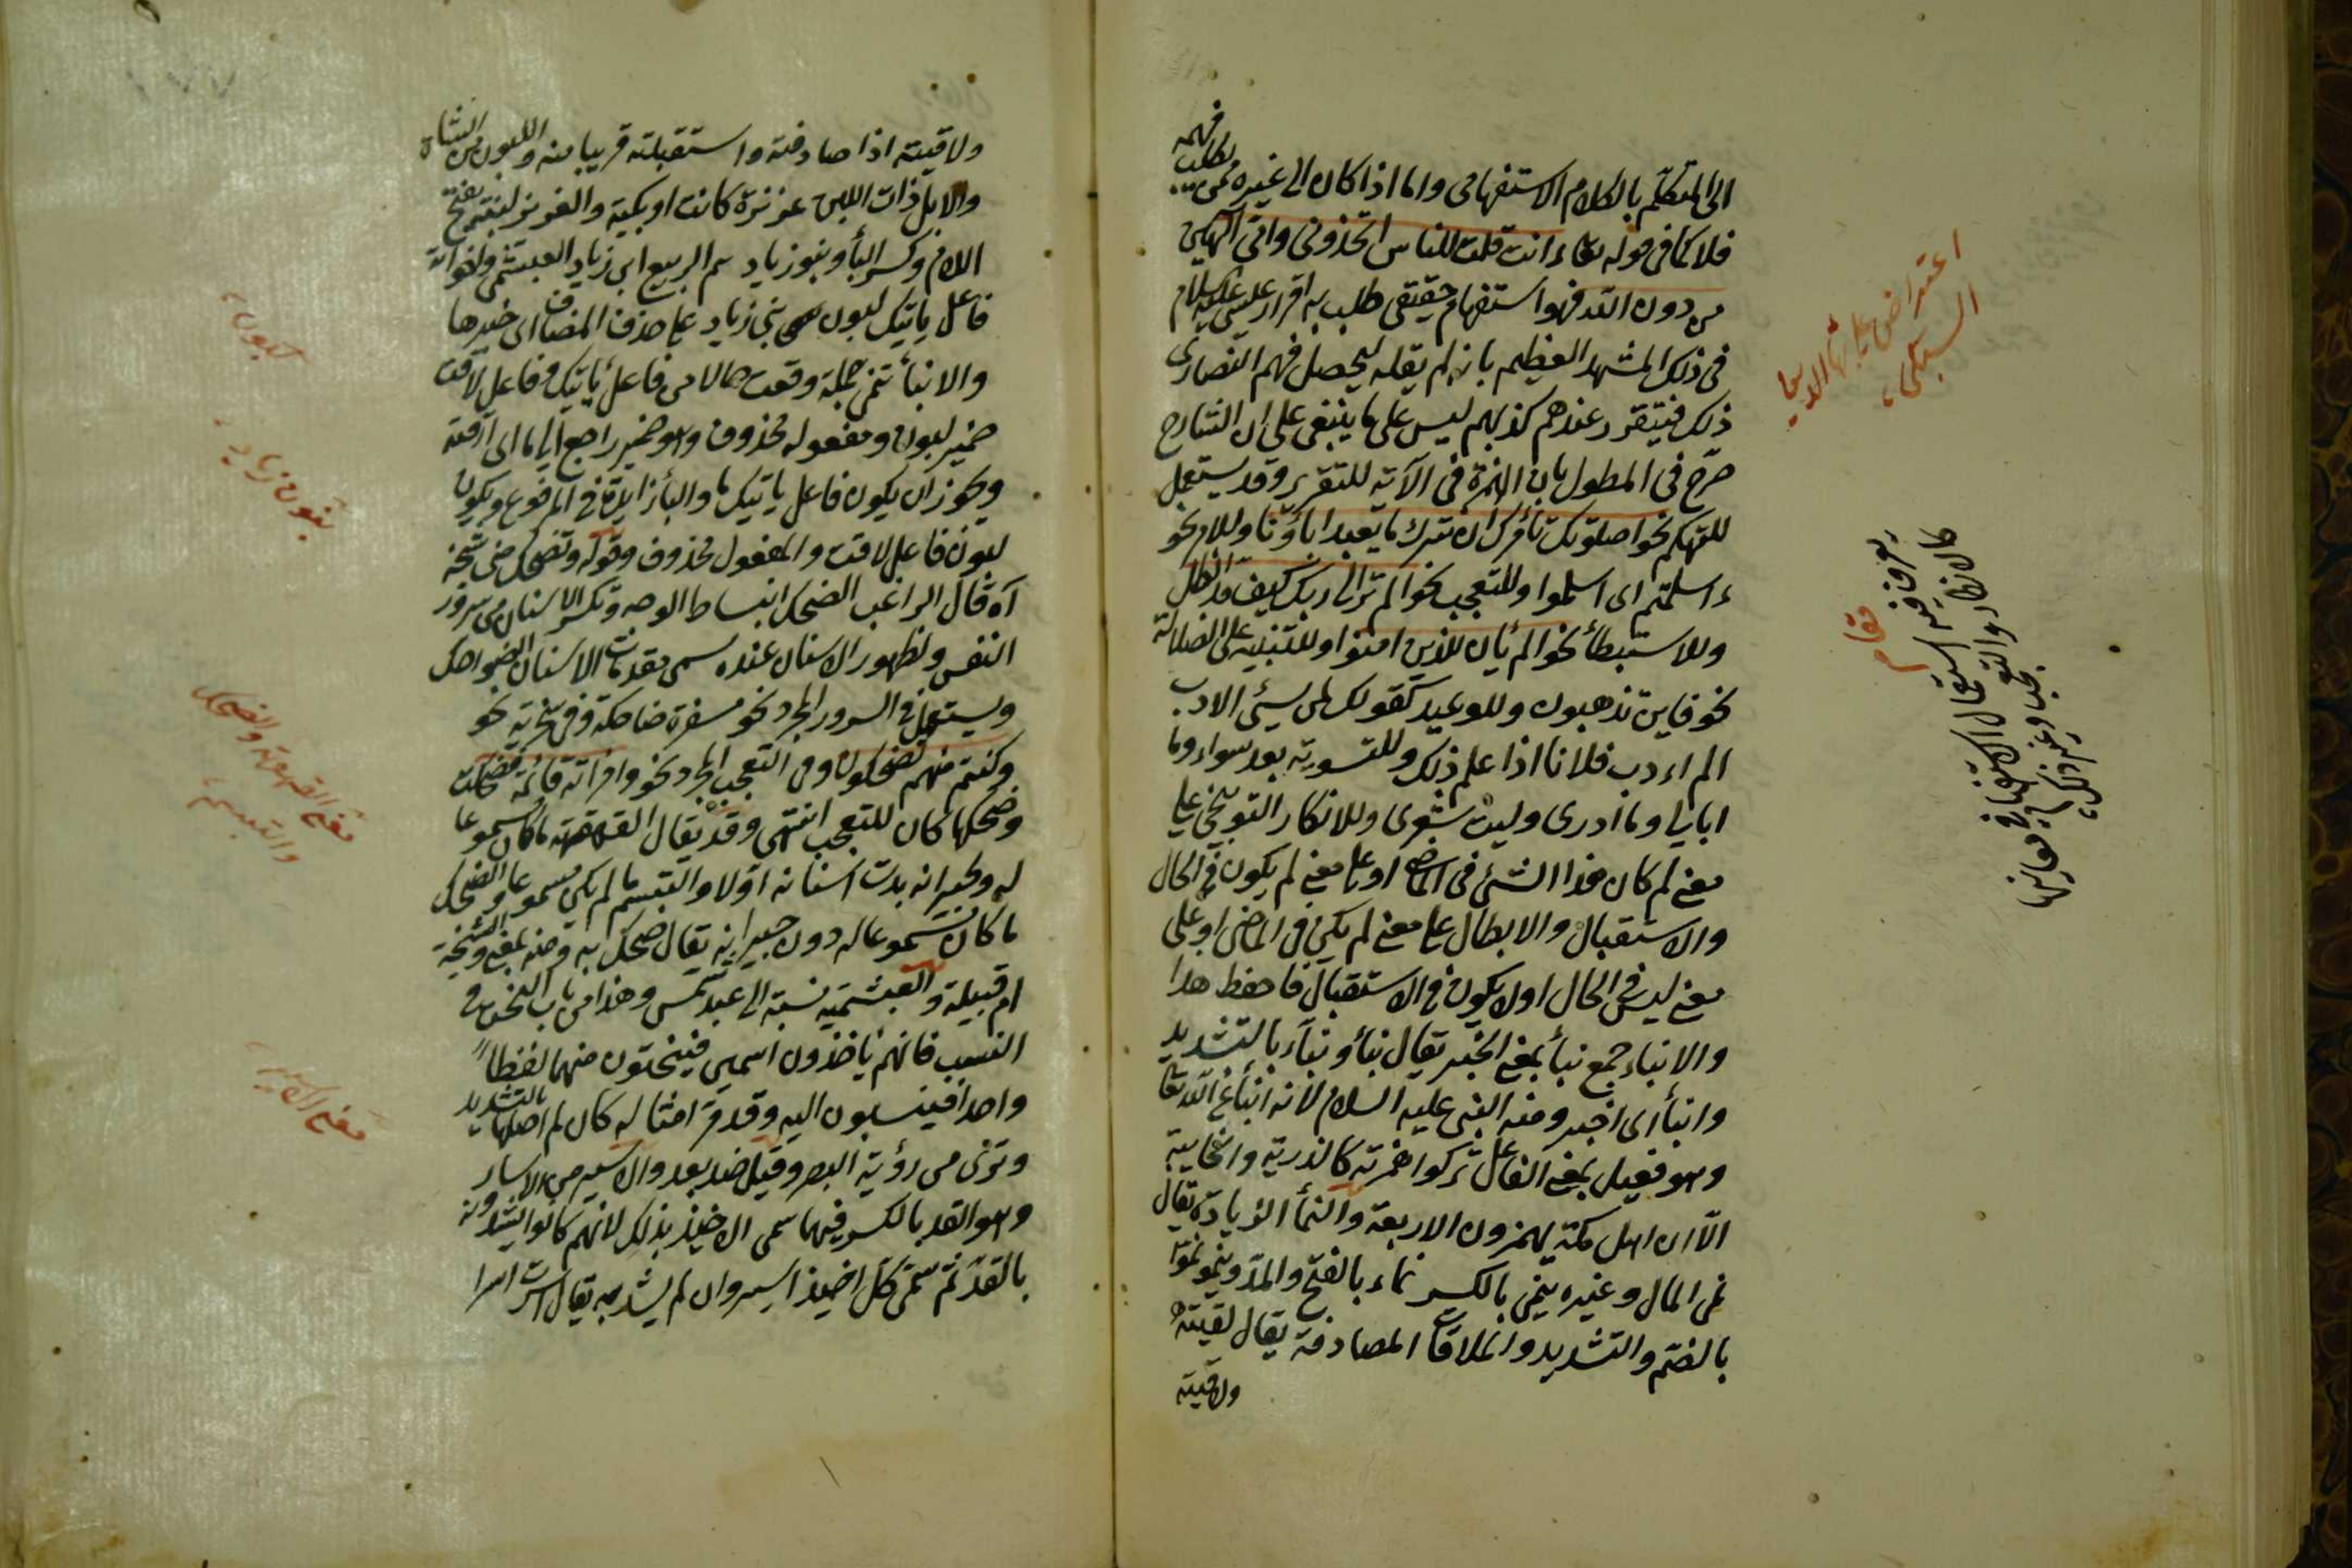 الى المتكلم بالكلام الاستفهامى واما اذا كان الى غيره ممن يطلب فهمه
فلا كما فى قوله تعا ءانت قلت للناس اتخذونى وامى آلهين
من دون الله فهو استفهام حقيقى طلب به اقرار عيسى عليه السلام
فى ذلك المشهد العظيم بانه لم يقله ليحصل فهم النصارى
ذلك فيتقرر عندهم كذبهم ليس على ما ينبغى على ان الشارح
صرح فى المطول بان الهمزة فى الآية للتقرير وقد يستعمل
للتهكم نحو اصلوتك تأمرك ان نترك ما يعبد اباؤنا وللامر نحو
ءاسلمتم اى اسلموا وللتعجب نحو الم تر الى ربك كيف مد الظل
وللاستبطأ نحو الم يأن للذين امنوا وللتنبيه على الضلالة
نحو فاين تذهبون وللوعيد كقولك لمن يسئ الادب
الم اءدب فلانا اذا علم ذلك وللتسوية بعد سواء وما
ابالى وما ادرى وليت شعرى وللانكار التوبيخى على
معنى لم كان هذا الشئ فى الماضى او على معنى لم يكون فى الحال
والاستقبال والابطال على معنى لم يكن فى الماضى او على
معنى ليس فى الحال اولا يكون فى الاستقبال فاحفظ هذا
والانباء جمع نبأ بمعنى الخبر يقال نبأ ونبأء بالتشديد
وانبأ اى اخبر ومنه النبى عليه السلام لانه انبأ عن الله تعا
وهو فعيل بمعنى الفاعل تركوا همزته كالذرية والخابية
الا ان اهل مكة يهمزون الاربعة والنمأ الزيادة يقال
نمى المال وغيره ينمى بالكسر نماء بالفتح والمد وينمو نموا
بالضم والتشديد والملاقات المصادفة يقال لقيته
ولاقيته
اعتراض على الشارح
مقام
يعرف فيه استعمال الاستفهام فى معانيها
كالانكار والتعجب وغير ذلك
ولاقيته اذا صادفته واستقبلته قريبا منه واللبون من الشاة
والابل ذات اللبن عزيزة كانت او بكية والغوين لبنتم بفتح
اللام وكسر البأ وبنو زياد هم الربيع ابن زياد العبشمى واخواته
فاعل ياتيك لبون بنى زياد على حذف المضاف اى خبرها
والانبأ تنمى جملة وقعت حالا من فاعل يأتيك وفاعل لاقت
ضمير لبون ومفعوله محذوف وهو ضمير راجع الى ما اى لاقته
ويجوز ان يكون فاعل ياتيك ما والبأ زايدة فى المرفوع ويكون
لبون فاعل لاقت والمفعول محذوف وقوله وتضحك منى شيخة
آه قال الراغب الضحك انبساط الوجه وتكسر الاسنان من سرور
النفس ولظهور الاسنان عنده سمى مقدمات الاسنان الضواحك
ويستعمل فى السرور المجرد نحو مسفرة ضاحكة وفى سخرية نحو
وكنتم منهم تضحكون وفى التعجب المجرد نحو وامرأته قائمة فضحكت
وضحكها كان للتعجب انتهى وقد يقال القهقهة ما كان مسموعا
له ولجيرانه بدت اسنانه اولا والتبسم ما لم يكن مسموعا والضحك
ما كان مسموعا له دون جيرانه يقال ضحك به ومنه بمعنى والشيخة
ام قبيلة والعبشمية نسبة الى عبد شمس وهذا من باب النحت فى
النسب فانهم يأخذون اسمين فينحتون منهما لفظا
واحدا فينسبون اليه وقد مر امثاله كان لم اصلها بالتشديد
وترى من رؤية البصر وقيل ضد بعد والاسير من الاسار
وهو القد بالكسر فيهما سمى الاخيذ بذلك لانهم كانوا يشدونه
بالقد ثم سمى كل اخيذ اسير وان لم يشد به يقال اسرت اسرا
لبون
بنون زياد
معنى القهقهة والضحك
والتبسم
معنى الاسير